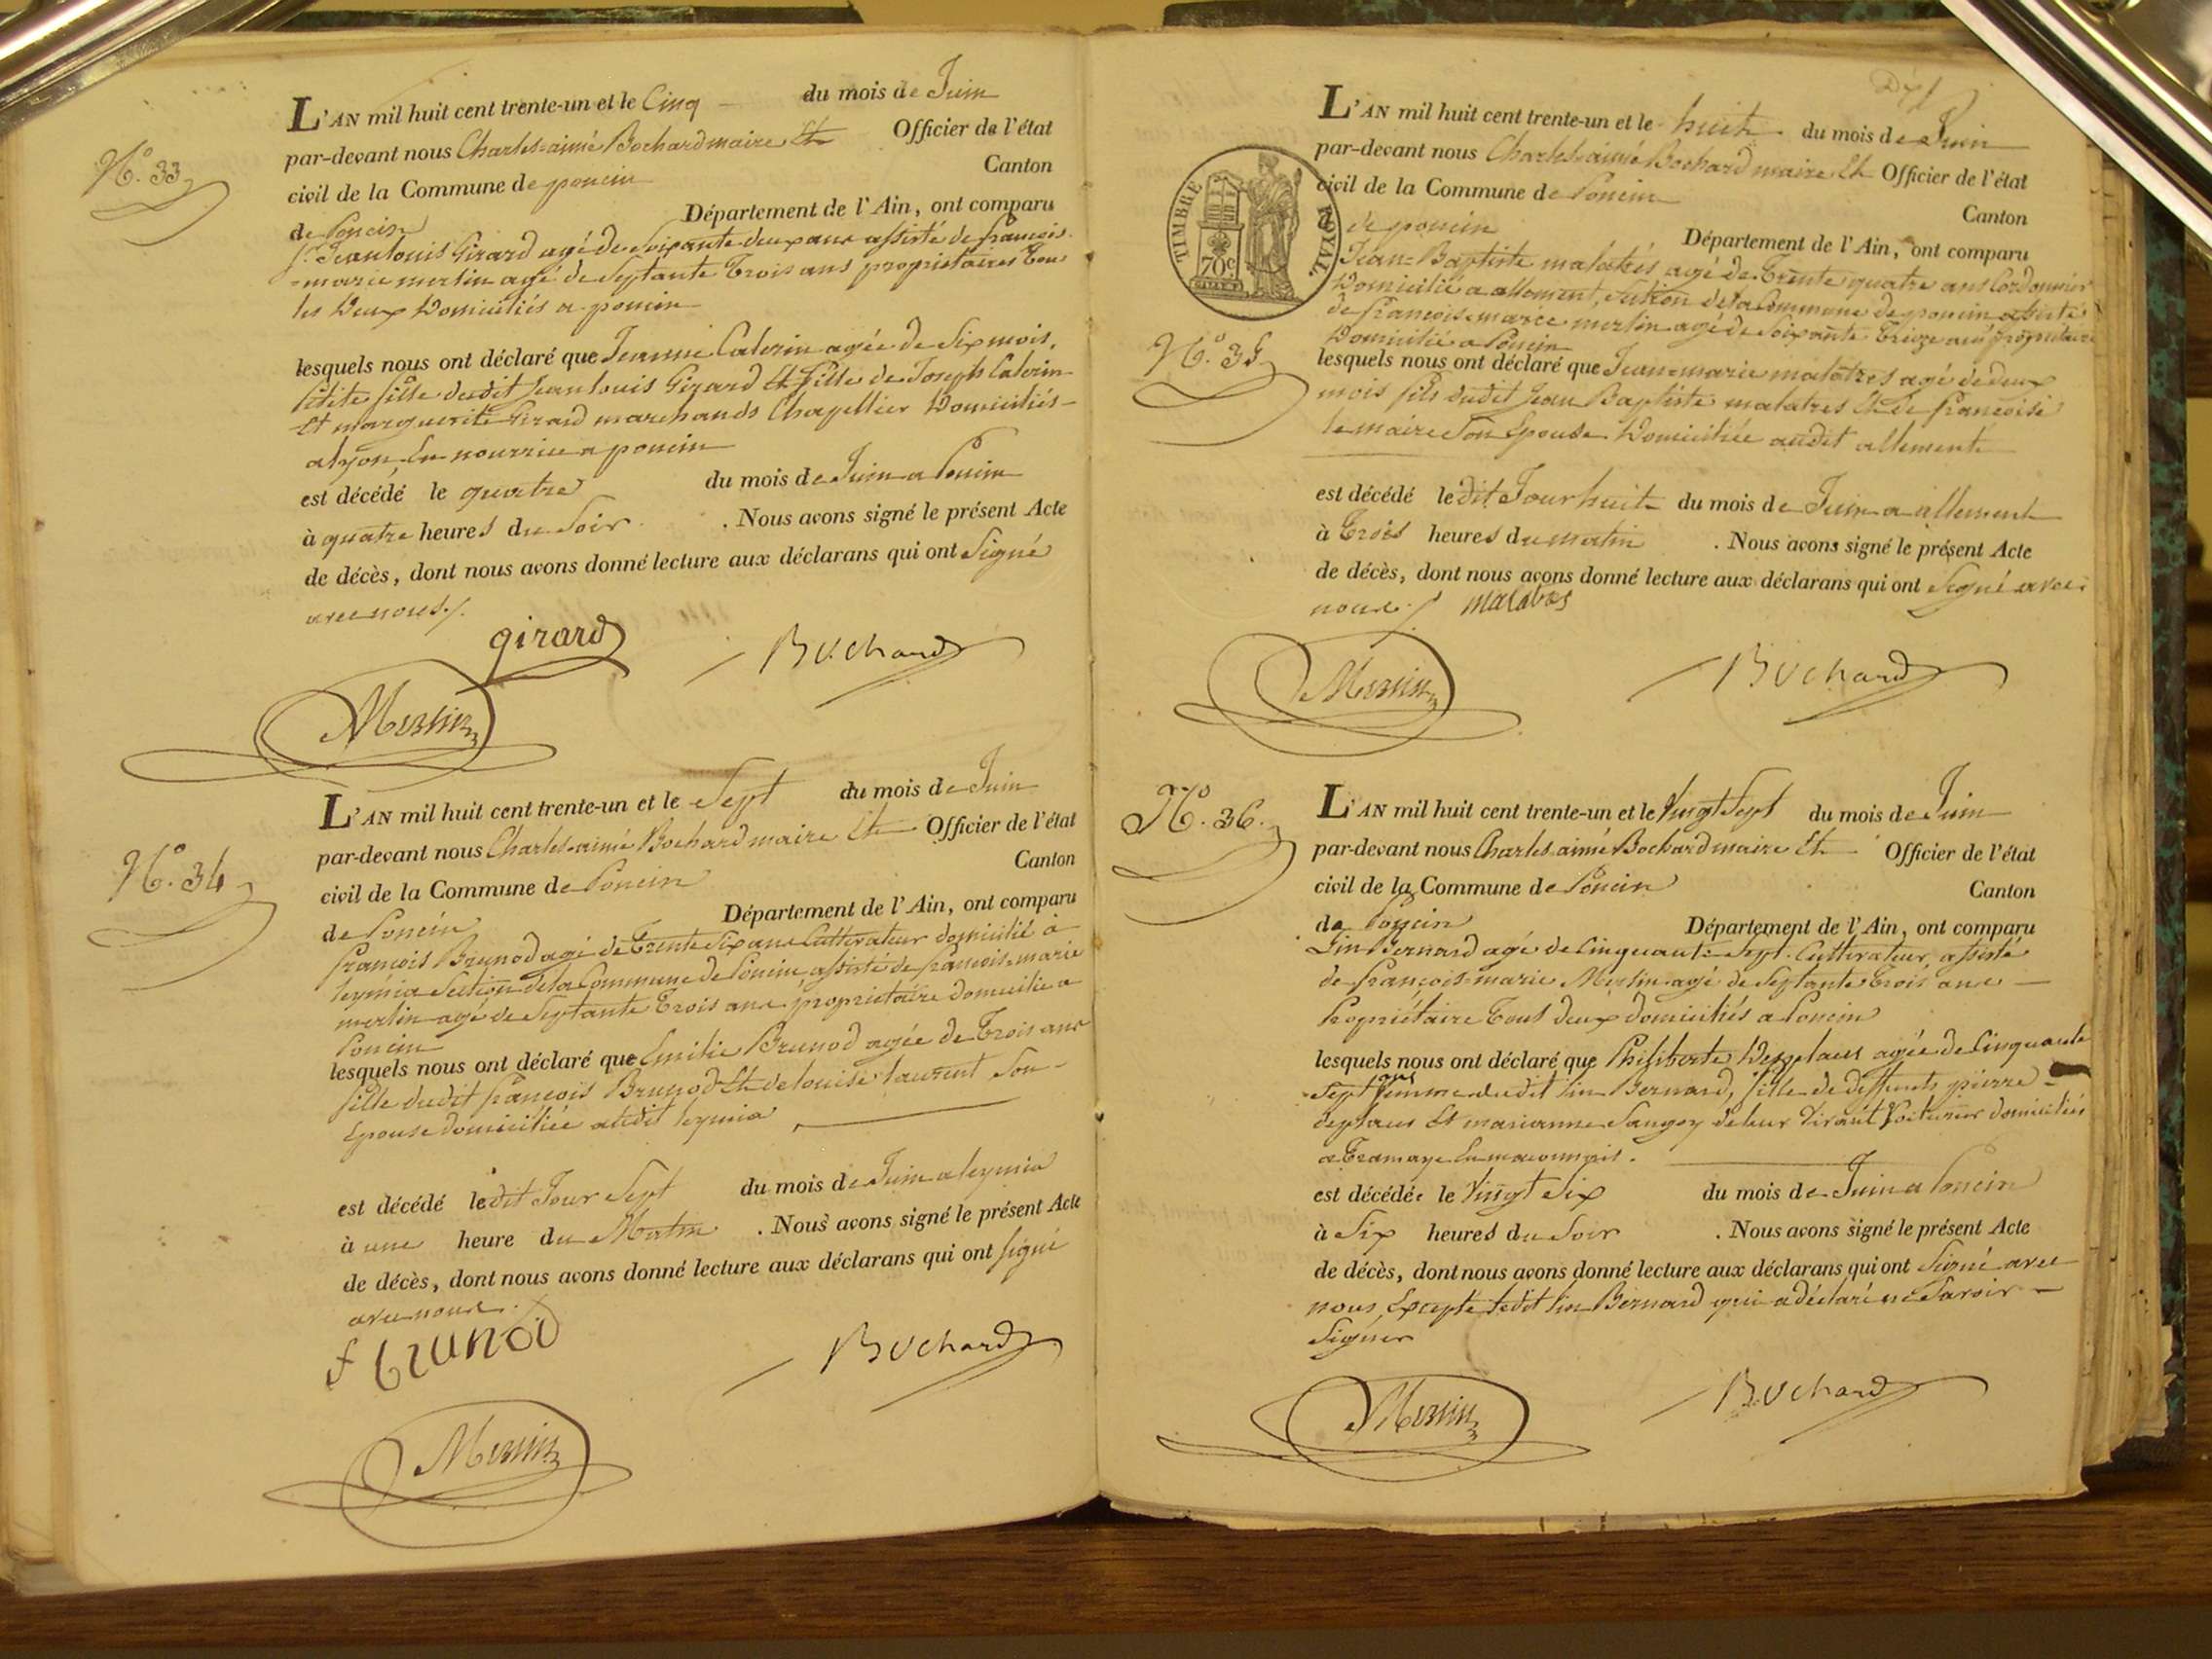 N.o 33
L'AN mil huit cent trente-un et le Cinq du mois de Juin
par-devant nous Charles-aimé Bochard maire Et Officier de l'état
civil de la Commune de poncin Canton
de Poncin Département de l'Ain, ont comparu
Sr. Jean louis Girard agé de Soixante deux ans assisté de françois
=marie merlin agé de Septante Trois ans propriétaires Tous
les Deux Domiciliés a poncin
lesquels nous ont déclaré que Jeanne Calerin agée de Six mois,
petite fille dudit Jean louis Girard Et fille de Joseph Calerin
Et marguerite Girard marchands Chapellier Domiciliés
a lyon, En nourrice a poncin
est décédé le quatre du mois de Juin a Poncin
à quatre heures du Soir . Nous avons signé le présent Acte
de décès, dont nous avons donné lecture aux déclarans qui ont Signé
avec nous ./.
girard
Bochard
Merlin
N.o 34
L'AN mil huit cent trente-un et le Sept du mois de Juin
par-devant nous Charles-aimé Bochard maire Et Officier de l'état
civil de la Commune de Poncin Canton
de Poncin Département de l'Ain, ont comparu
françois Brunod agé de Trente Six ans Cultivateur domicilié à
leymia Section de la Commune de Poncin assisté de françois-marie
merlin agé de Septante Trois ans propriétaire domicilié a
Poncin
lesquels nous ont déclaré que Emilie Brunod agée de Trois ans
fille dudit françois Brunod Et de louise laurent Son
Epouse domiciliée audit leymia
est décédé le dit Jour Sept du mois de Juin a leymia
à une heure du Matin . Nous avons signé le présent Acte
de décès, dont nous avons donné lecture aux déclarans qui ont signé
avec nous ./
f brunod
Bochard
Merlin
TIMBRE ROYAL
70c
N.o 35
L'AN mil huit cent trente-un et le huit du mois de Juin
par-devant nous Charles-aimé Bochard maire Et Officier de l'état
civil de la Commune de Poncin Canton
de poncin Département de l'Ain, ont comparu
Jean=Baptiste malatrés agé de Trente quatre ans Cordonnier
Domicilié a allement, Section de la Commune de poncin assisté
de françois=marie merlin agé de Soixante Treize ans propriétaire
Domicilié a Poncin
lesquels nous ont déclaré que Jean=marie malatres agé de deux
mois fils dudit Jean Baptiste malatres Et de françoise
lemaire Son Epouse Domiciliée audit allement
est décédé le dit Jour huit du mois de Juin a allement
à Trois heures du matin . Nous avons signé le présent Acte
de décès, dont nous avons donné lecture aux déclarans qui ont Signé avec
nous ./ malatres
Merlin
Bochard
N.o 36.
L'AN mil huit cent trente-un et le Vingt Sept du mois de Juin
par-devant nous Charles-aimé Bochard maire Et Officier de l'état
civil de la Commune de Poncin Canton
de Poncin Département de l'Ain, ont comparu
Lin Bernard agé de Cinquante Sept Cultivateur assisté
de françois-marie Merlin agé de Septante Trois ans
Propriétaire Tous deux domiciliés a Poncin
lesquels nous ont déclaré que Philiberte agée de Cinquante
Sept ans femme dudit lin Bernard, fille de deffunts pierre
Et marianne de leur Vivant Voiturier domiciliés
a Tramaye En maconnais.
est décédée le Vingt Six du mois de Juin a Poncin
à Six heures du Soir . Nous avons signé le présent Acte
de décès, dont nous avons donné lecture aux déclarans qui ont Signé avec
nous, Excepté ledit lin Bernard qui a déclaré ne Savoir
Signer
Merlin
Bochard